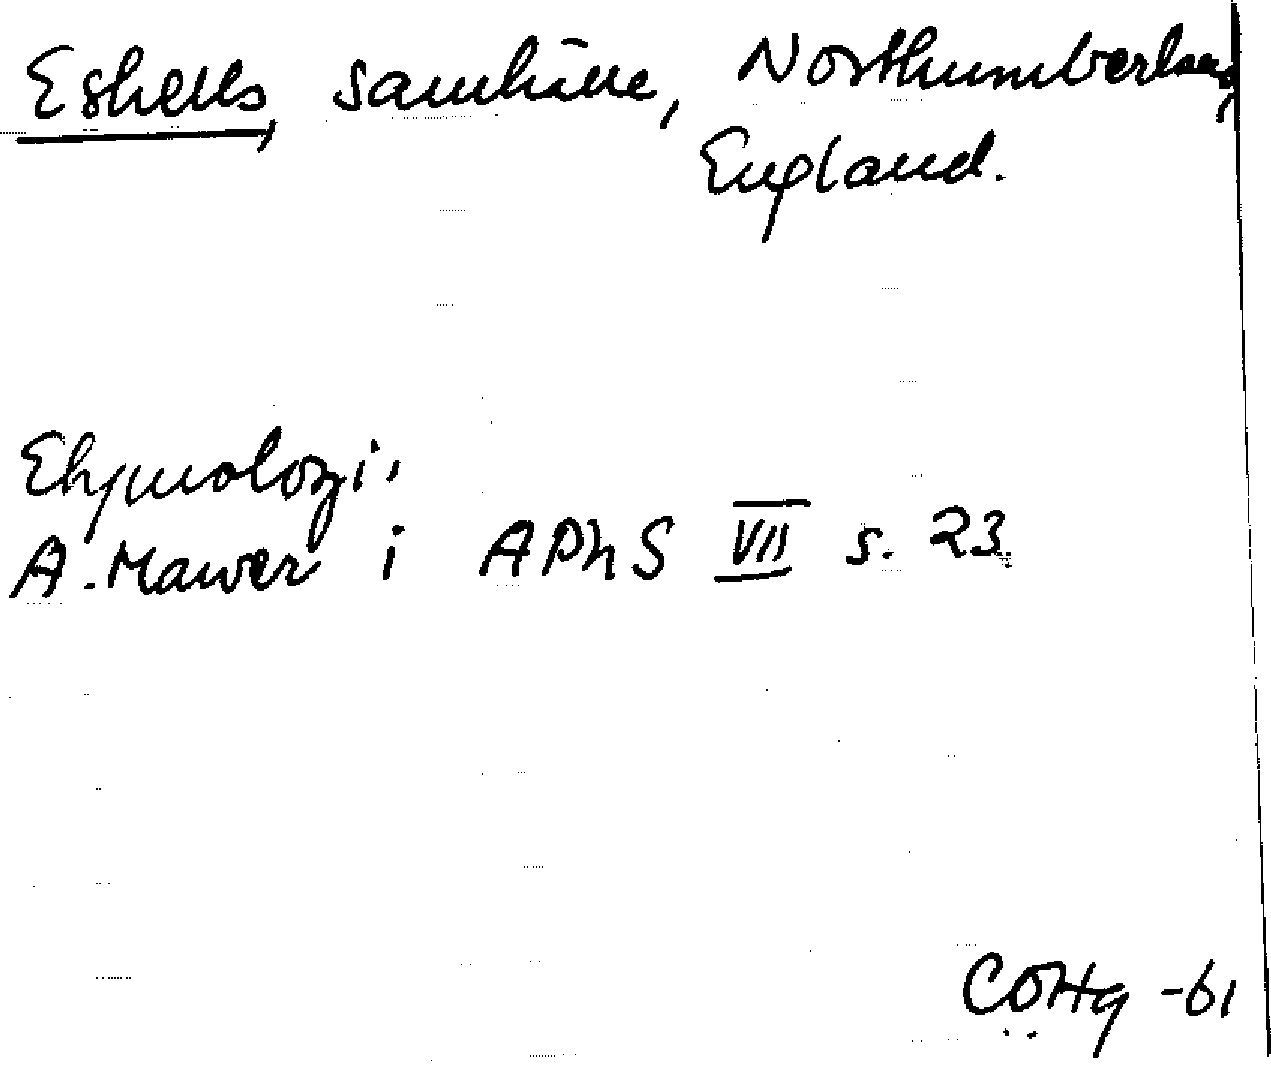 Eshells, samhälle, Northumberland,
England.
Etymologi.
A. Mawer i APhS VII s. 23.
COHg -61